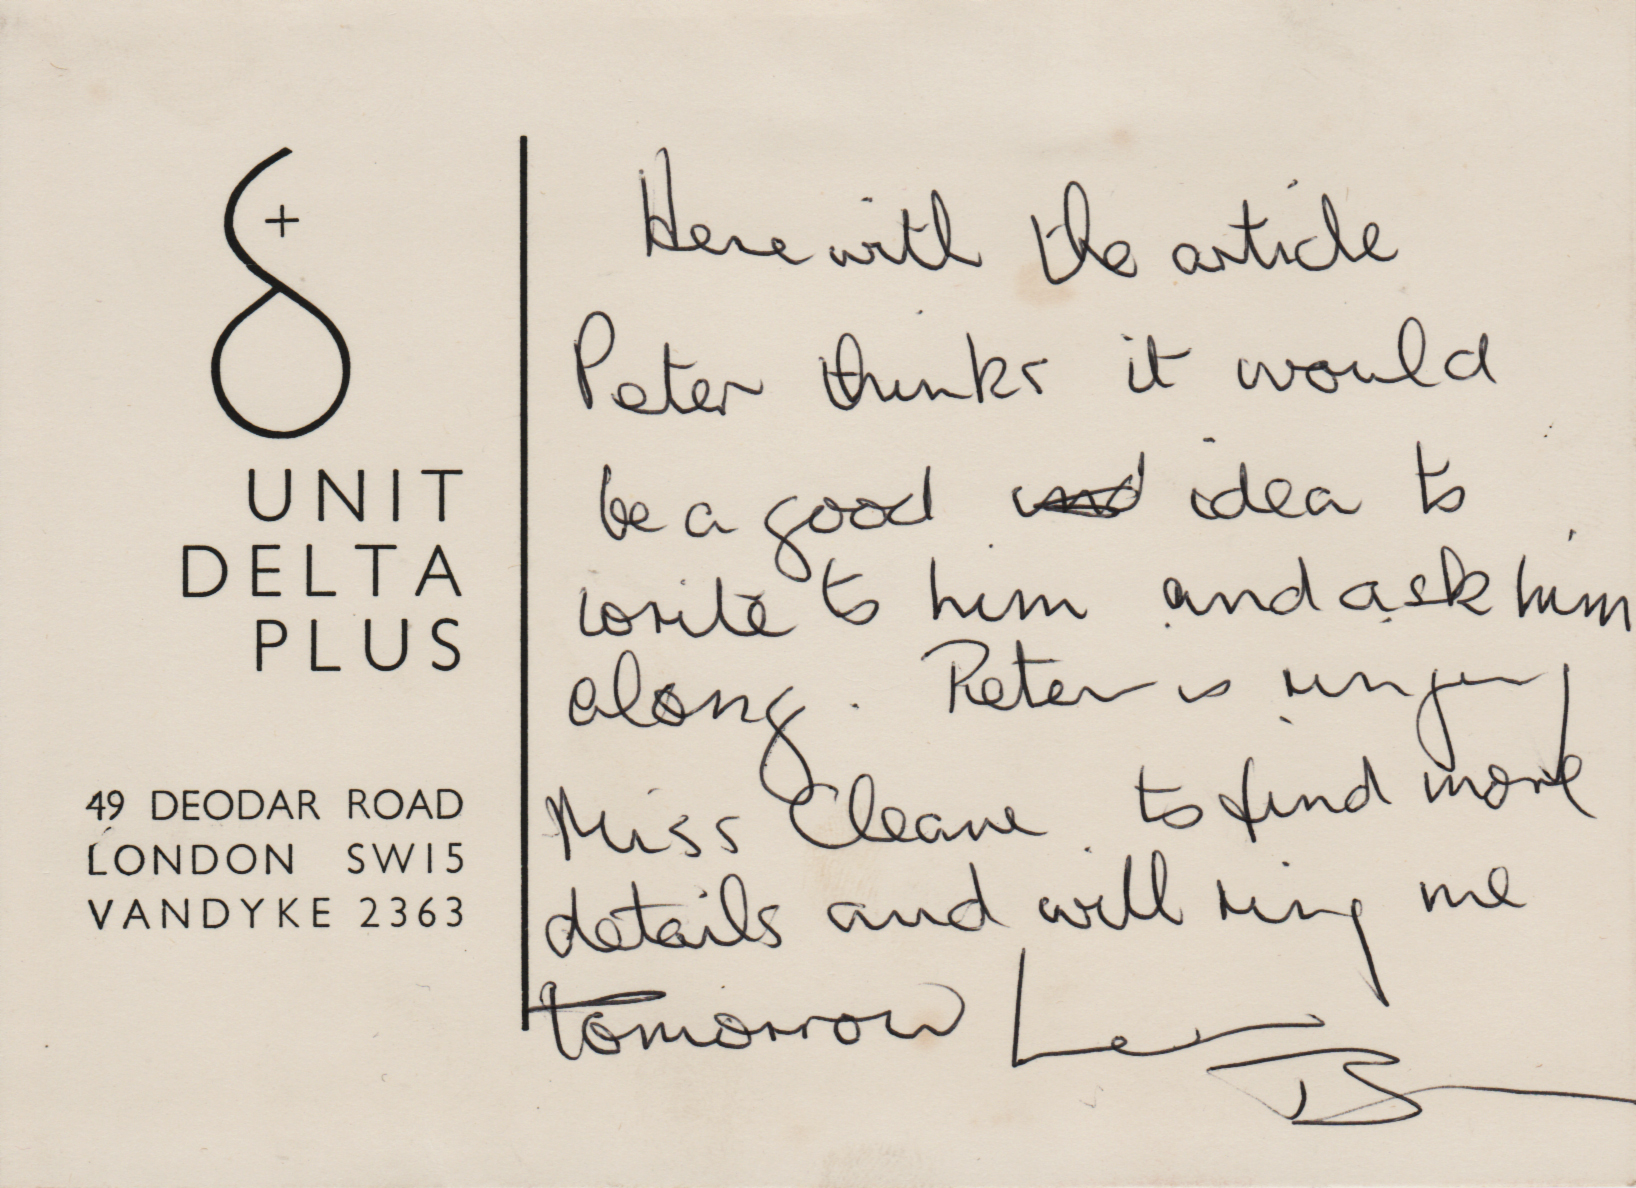 UNIT
DELTA
PLUS
49 DEODAR ROAD
LONDON SW15
VANDYKE 2363
Herewith the article
Peter thinks it would
be a good idea to
write to him and ask him
along. Peter is ringing
Miss Cleane to find more
details and will ring me
tomorrow